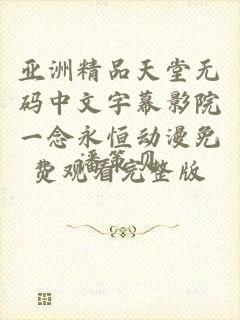 亚洲精品天堂无
码中文字幕影院
一念永恒动漫免
费观看完整版